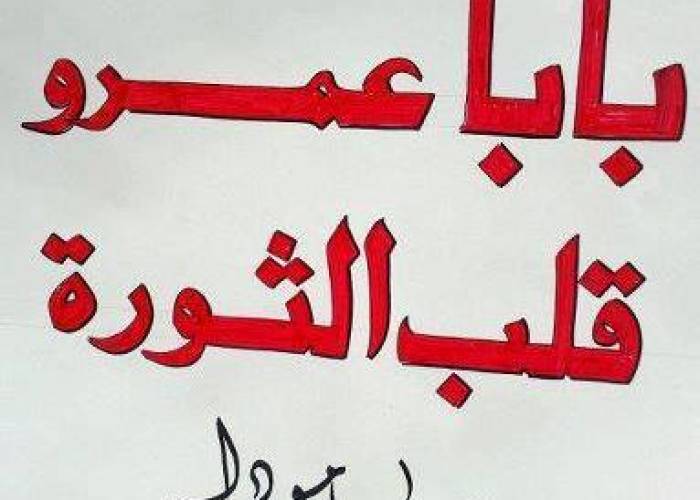 بابا عمرو
قلب الثورة